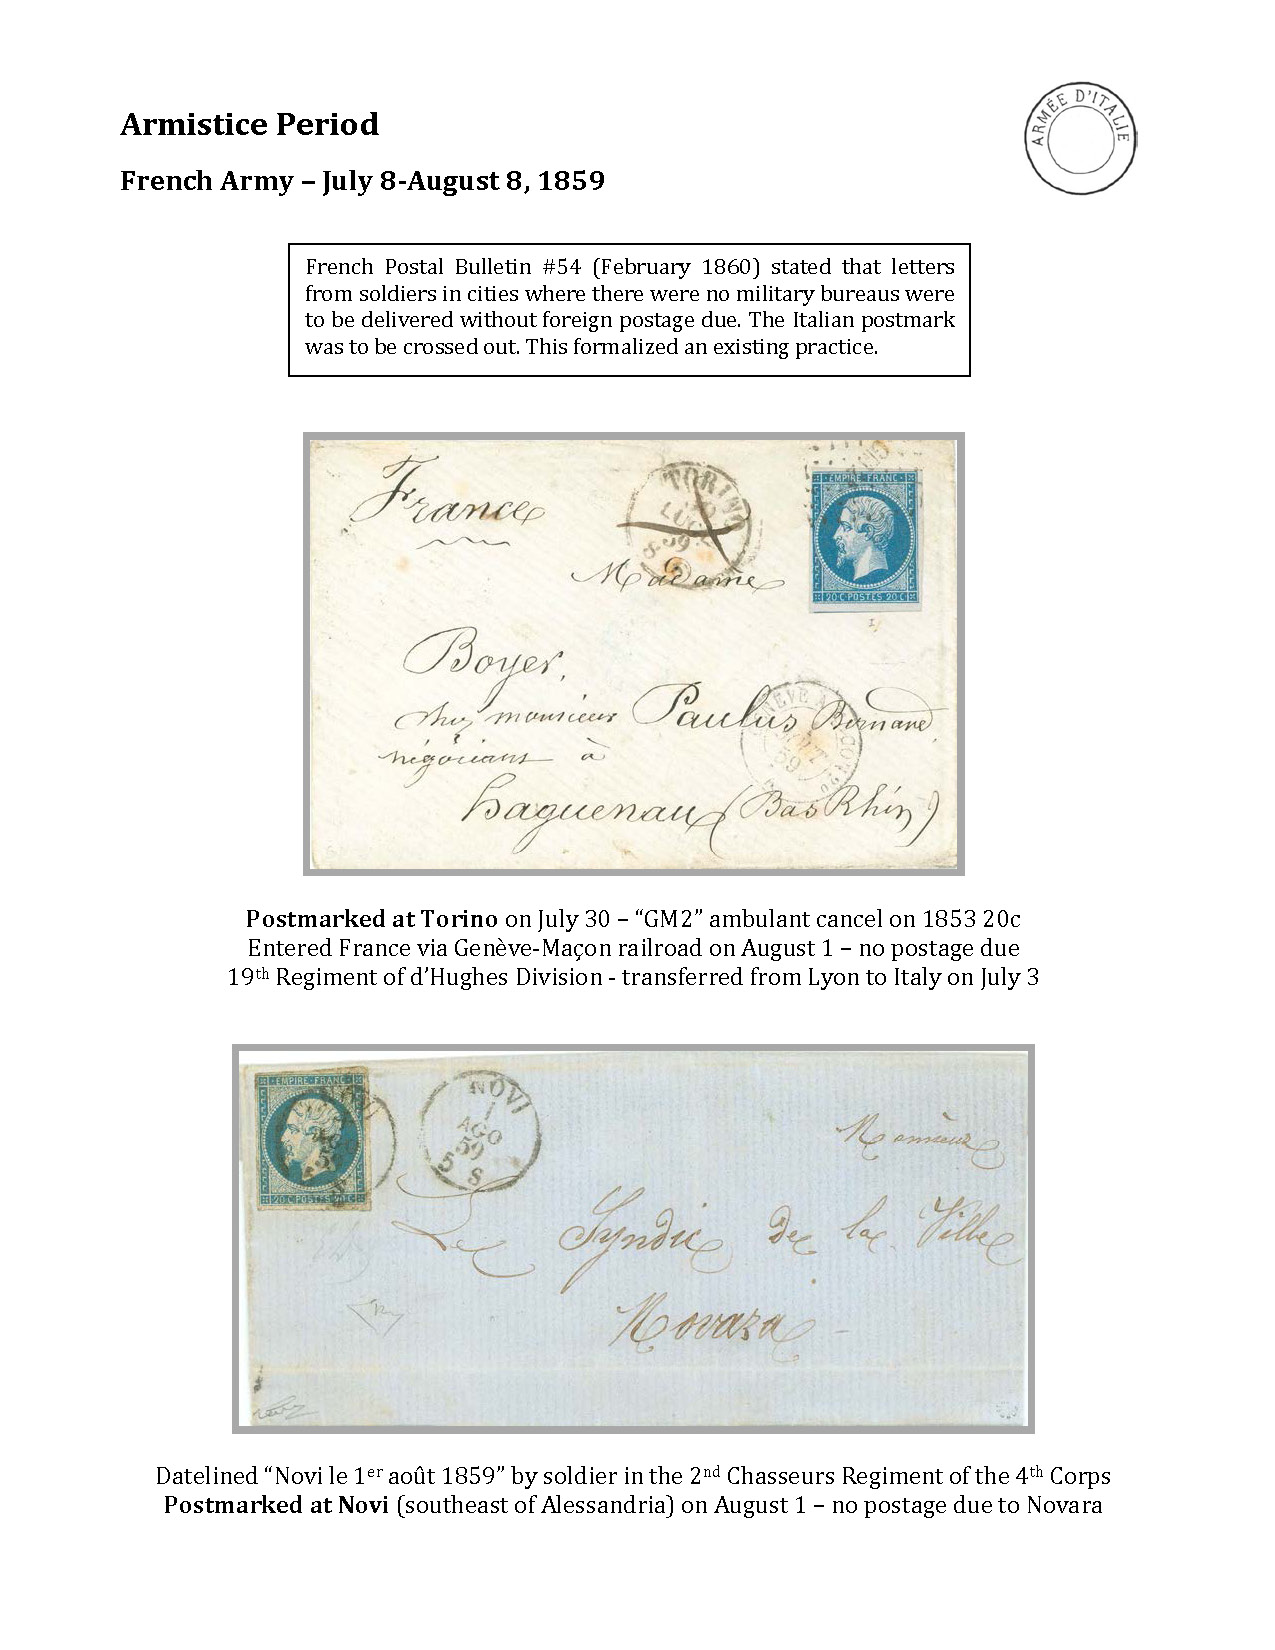 Armistice Period
ARMÉE D'ITALIE
French Army – July 8-August 8, 1859
French Postal Bulletin #54 (February 1860) stated that letters
from soldiers in cities where there were no military bureaus were
to be delivered without foreign postage due. The Italian postmark
was to be crossed out. This formalized an existing practice.
France
TORINO
LUG
59
EMPIRE FRANC
20 C POSTES 20 C
Madame
Boyer,
chez monsieur Paulus Bernard,
négociant à
haguenau (Bas Rhin)
59
Postmarked at Torino on July 30 – “GM2” ambulant cancel on 1853 20c
Entered France via Genève-Maçon railroad on August 1 – no postage due
19th Regiment of d’Hughes Division - transferred from Lyon to Italy on July 3
EMPIRE FRANC
20 C POSTES 20 C
NOVI
1
AGO
59
5 S
Monsieur
Le Syndic de la Ville
Novara
Datelined “Novi le 1er août 1859” by soldier in the 2nd Chasseurs Regiment of the 4th Corps
Postmarked at Novi (southeast of Alessandria) on August 1 – no postage due to Novara